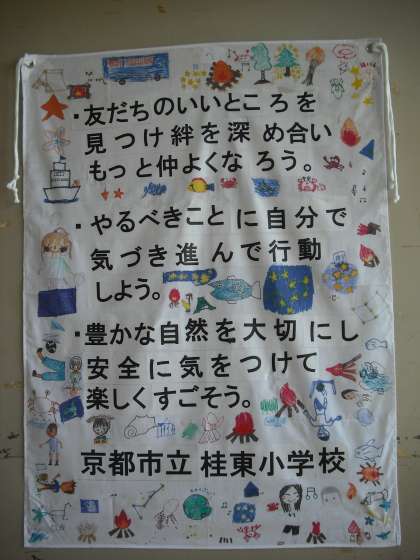 ・友だちのいいところを
見つけ絆を深め合い
もっと仲よくなろう。
・やるべきことに自分で
気づき進んで行動
しよう。
・豊かな自然を大切にし
安全に気をつけて
楽しくすごそう。
京都市立桂東小学校